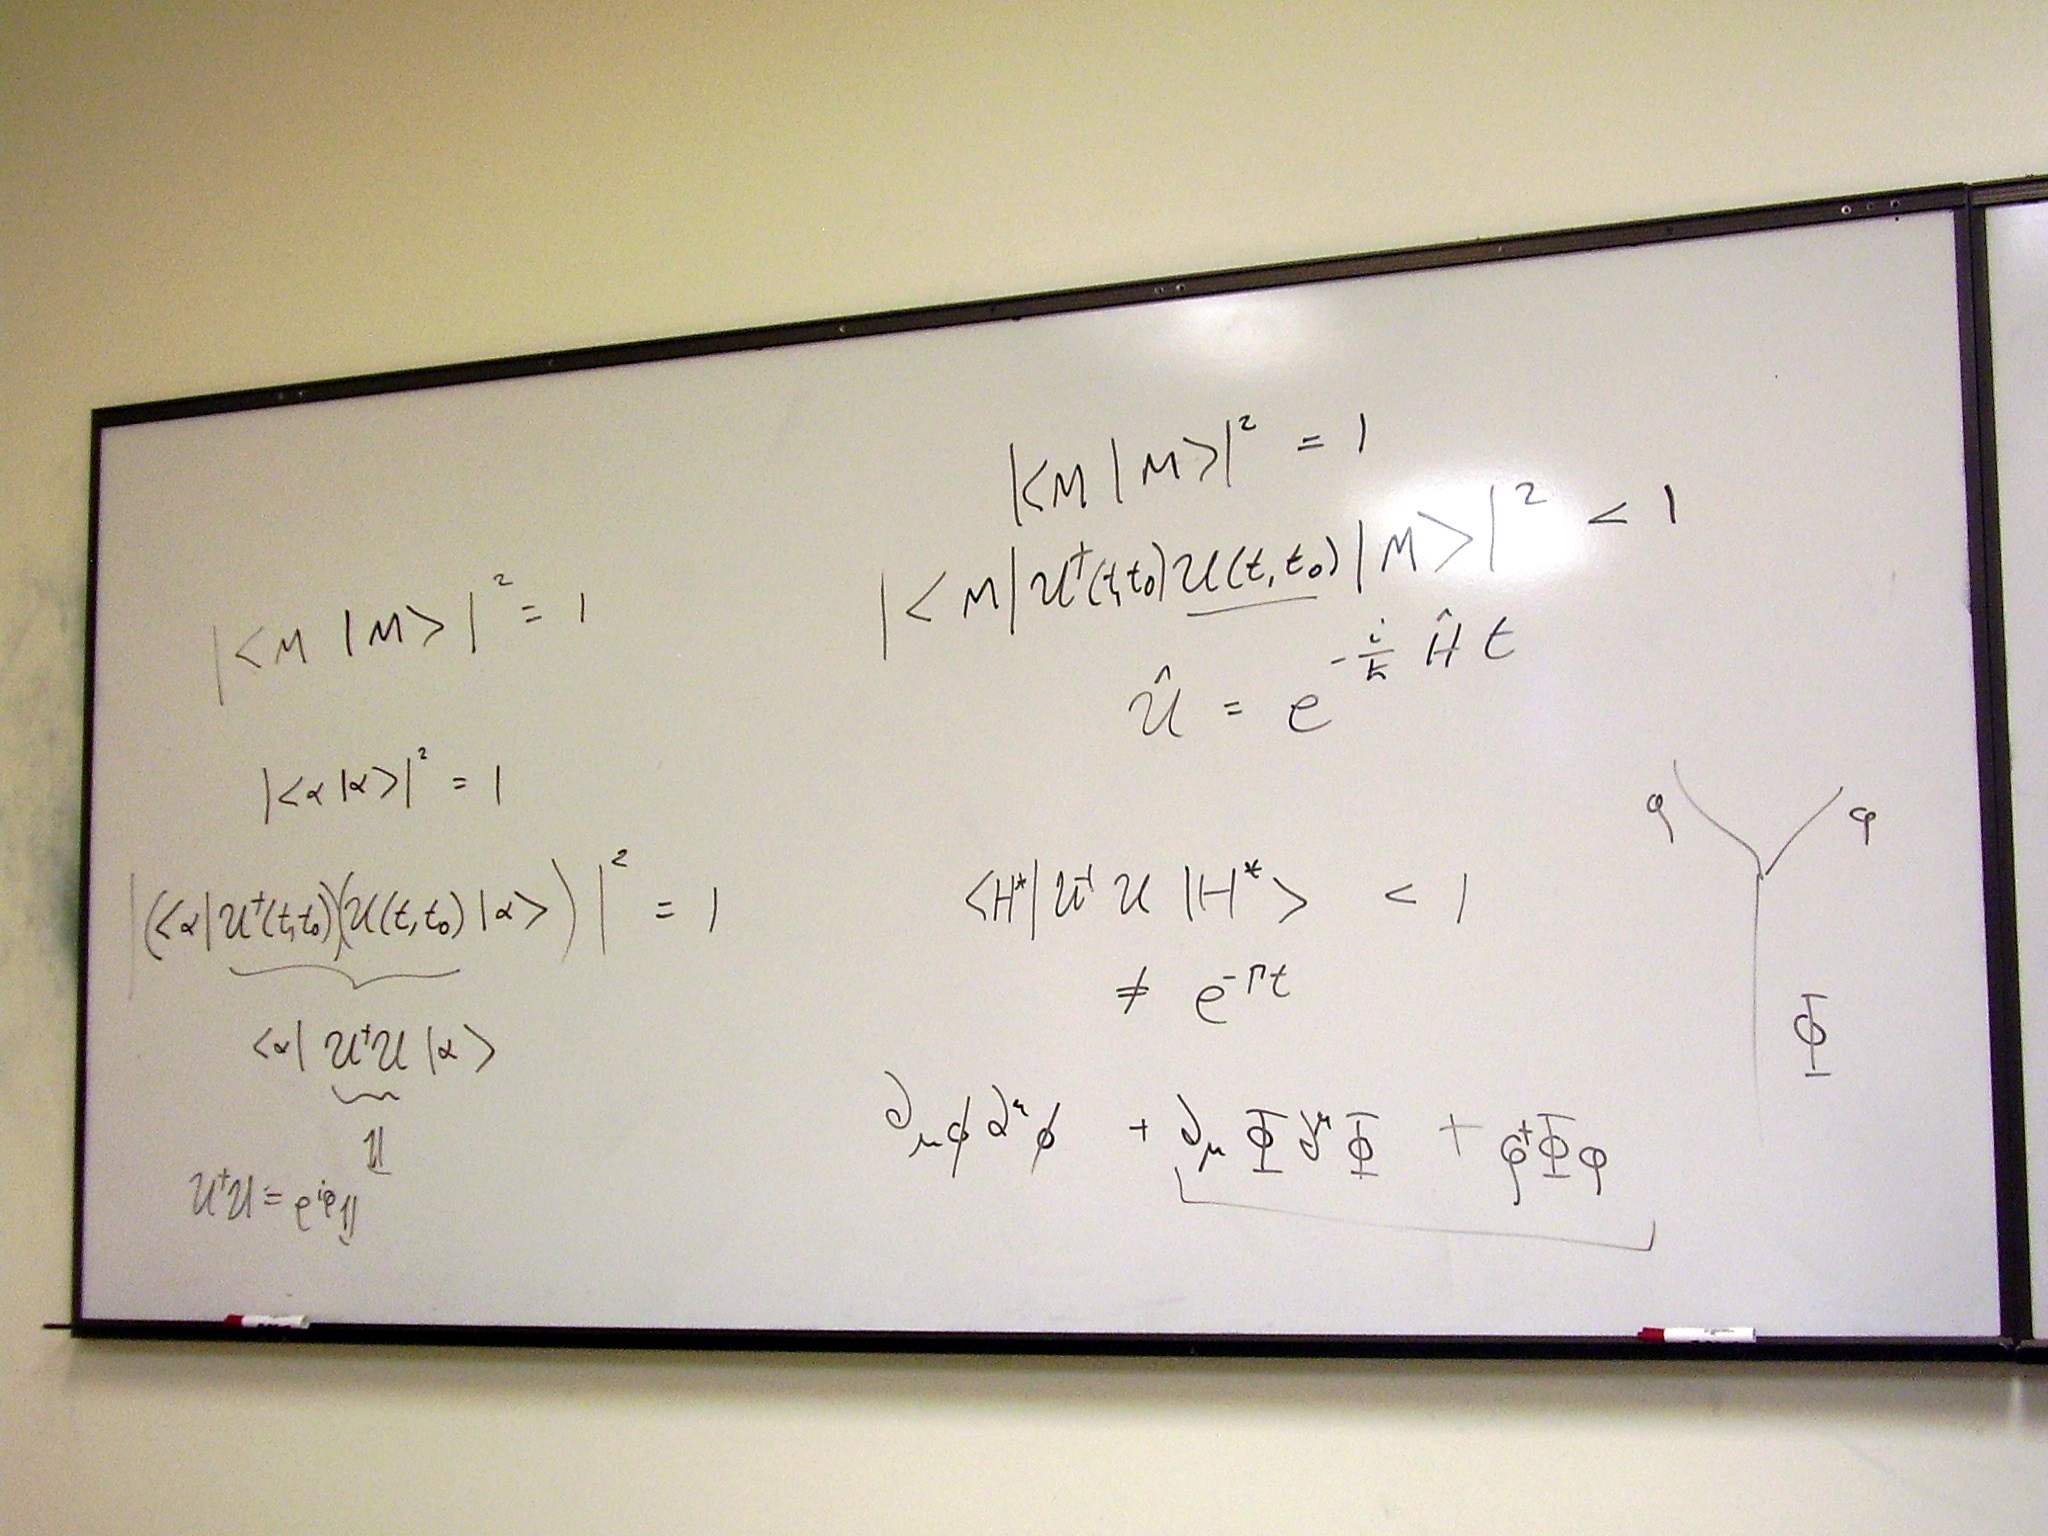 |<M|M>|² = 1
|<α|α>|² = 1
|(<α|U†(t,t₀))(U(t,t₀)|α>)|² = 1
<α|U†U|α>
𝟙
U†U = e^{iφ}𝟙
|<M|M>|² = 1
|<M|U†(t,t₀)U(t,t₀)|M>|² < 1
Û = e^{-i/ħ Ĥt}
<H*|U†U|H*> < 1
≠ e^{-Γt}
∂_μϕ∂^μϕ + ∂_μΦ∂^μΦ + φ†Φφ
φ φ
Φ